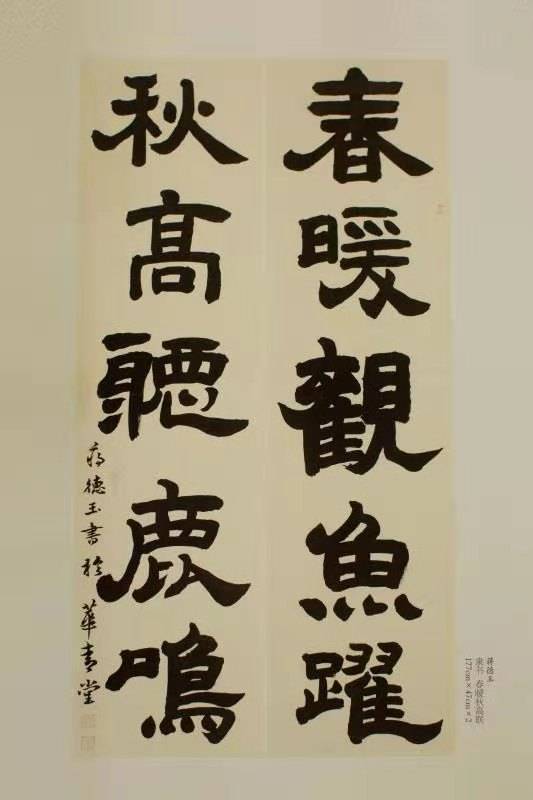 春暖觀魚躍
秋高聽鹿鳴
蔣德玉書於華青堂
蒋德玉
隶书 春暖秋高联
177cm×47cm×2